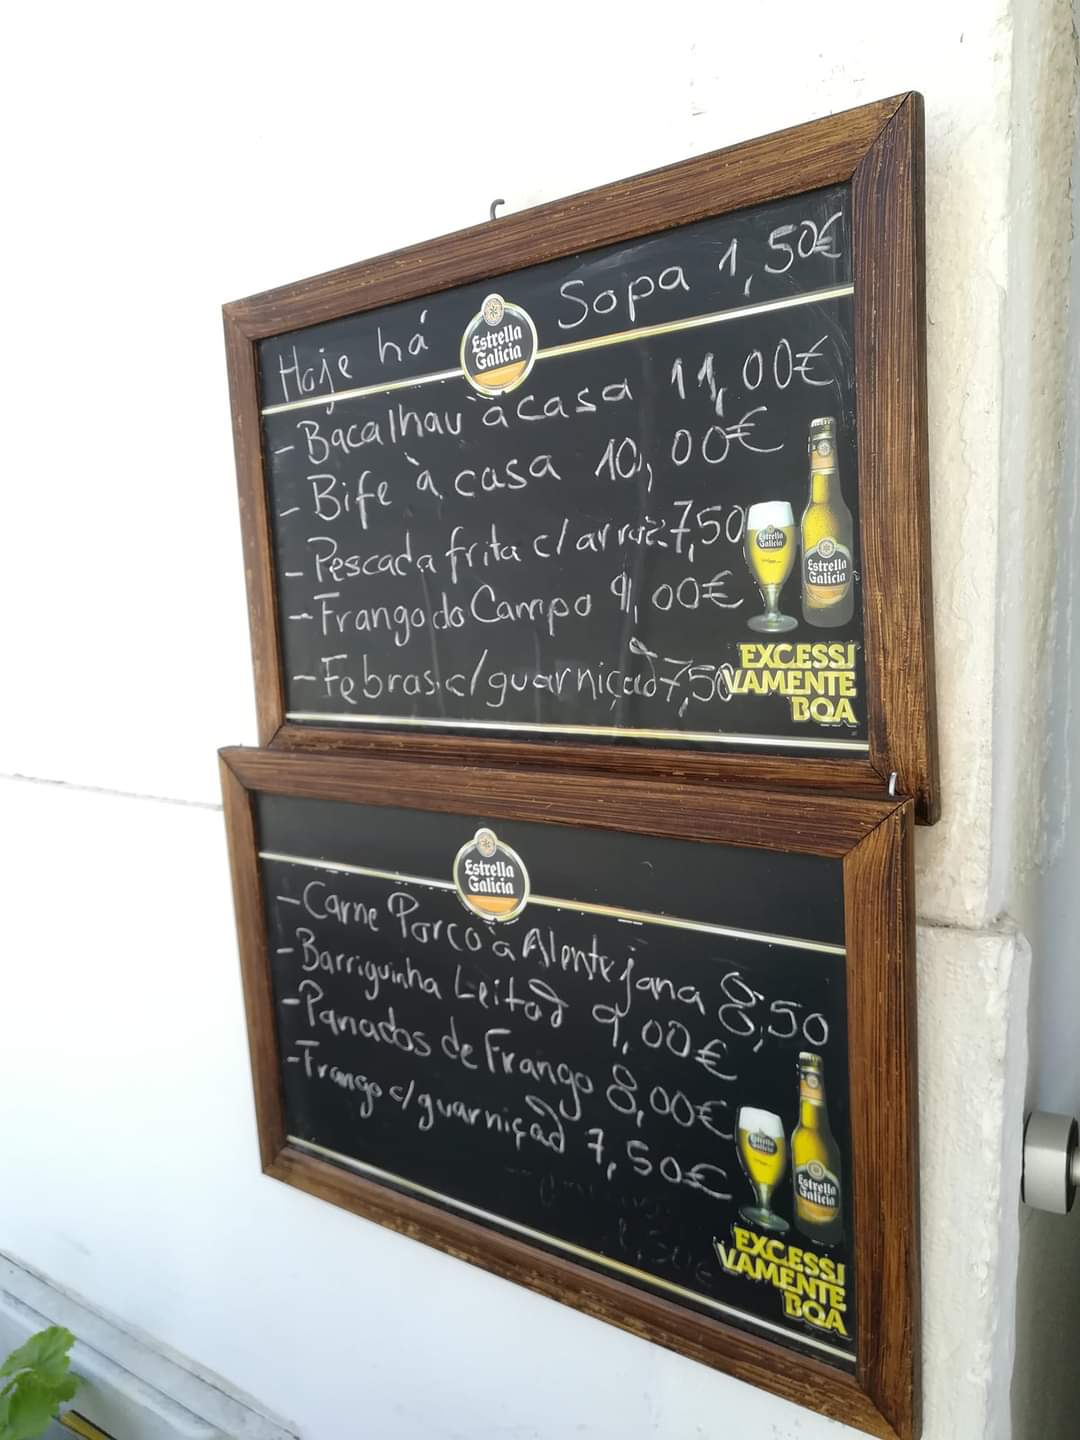 Hoje há Sopa 1,50€
Estrella Galicia
- Bacalhau à casa 11,00€
- Bife à casa 10,00€
- Pescada frita c/ arroz 7,50
- Frango do Campo 9,00€
- Febras c/ guarnição 7,50
Estrella Galicia
Estrella Galicia
EXCESSI
VAMENTE
BOA
Estrella Galicia
- Carne Porco à Alentejana 8,50
- Barriguinha Leitão 9,00€
- Panados de Frango 8,00€
- Frango c/ guarnição 7,50€
Estrella Galicia
Estrella Galicia
EXCESSI
VAMENTE
BOA